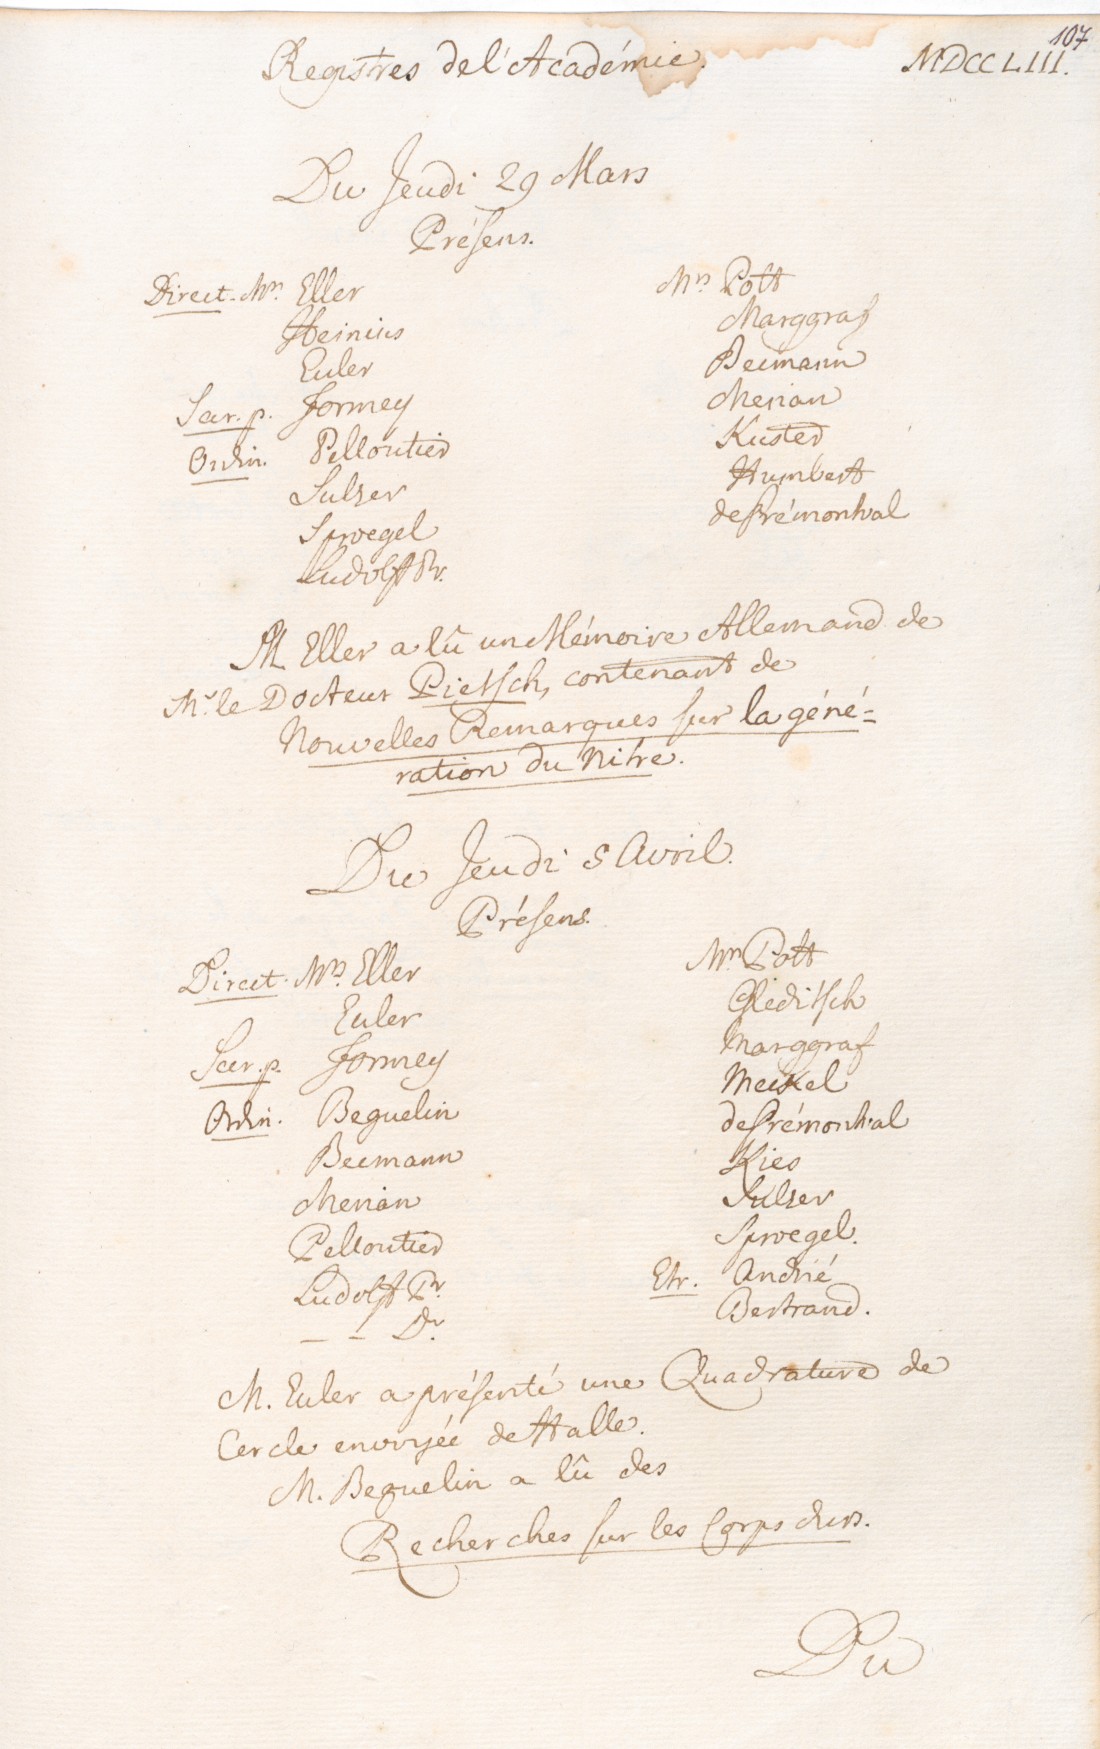 107
Registres de l'Académie.
MDCCLIII.
Du Jeudi 29 Mars
Présens.
Direct. Mrs. Eller
Heinius
Euler
Secr. p. Formey
Ordin. Pelloutier
Sulzer
Sproegel
Ludolff Pr.
Mrs Pott
Marggraf
Becmann
Merian
Kuster
Humbert
de Prémontval
M Eller a lû un Mémoire Allemand de
Mr. le Docteur Pietsch, contenant de
Nouvelles Remarques sur la géné=
ration du Nitre.
Du Jeudi 5 Avril.
Présens.
Direct. Mrs. Eller
Euler
Secr. p. Formey
Ordin. Beguelin
Becmann
Merian
Pelloutier
Ludolff Pr
_ _ Dr
Mrs Pott
Gleditsch
Marggraf
Meckel
de Prémontval
Kies
Sulzer
Sproegel.
Etr. André
Bertrand.
M. Euler a présenté une Quadrature de
Cercle envoyée de Halle.
M. Beguelin a lû des
Recherches sur les Corps durs.
Du